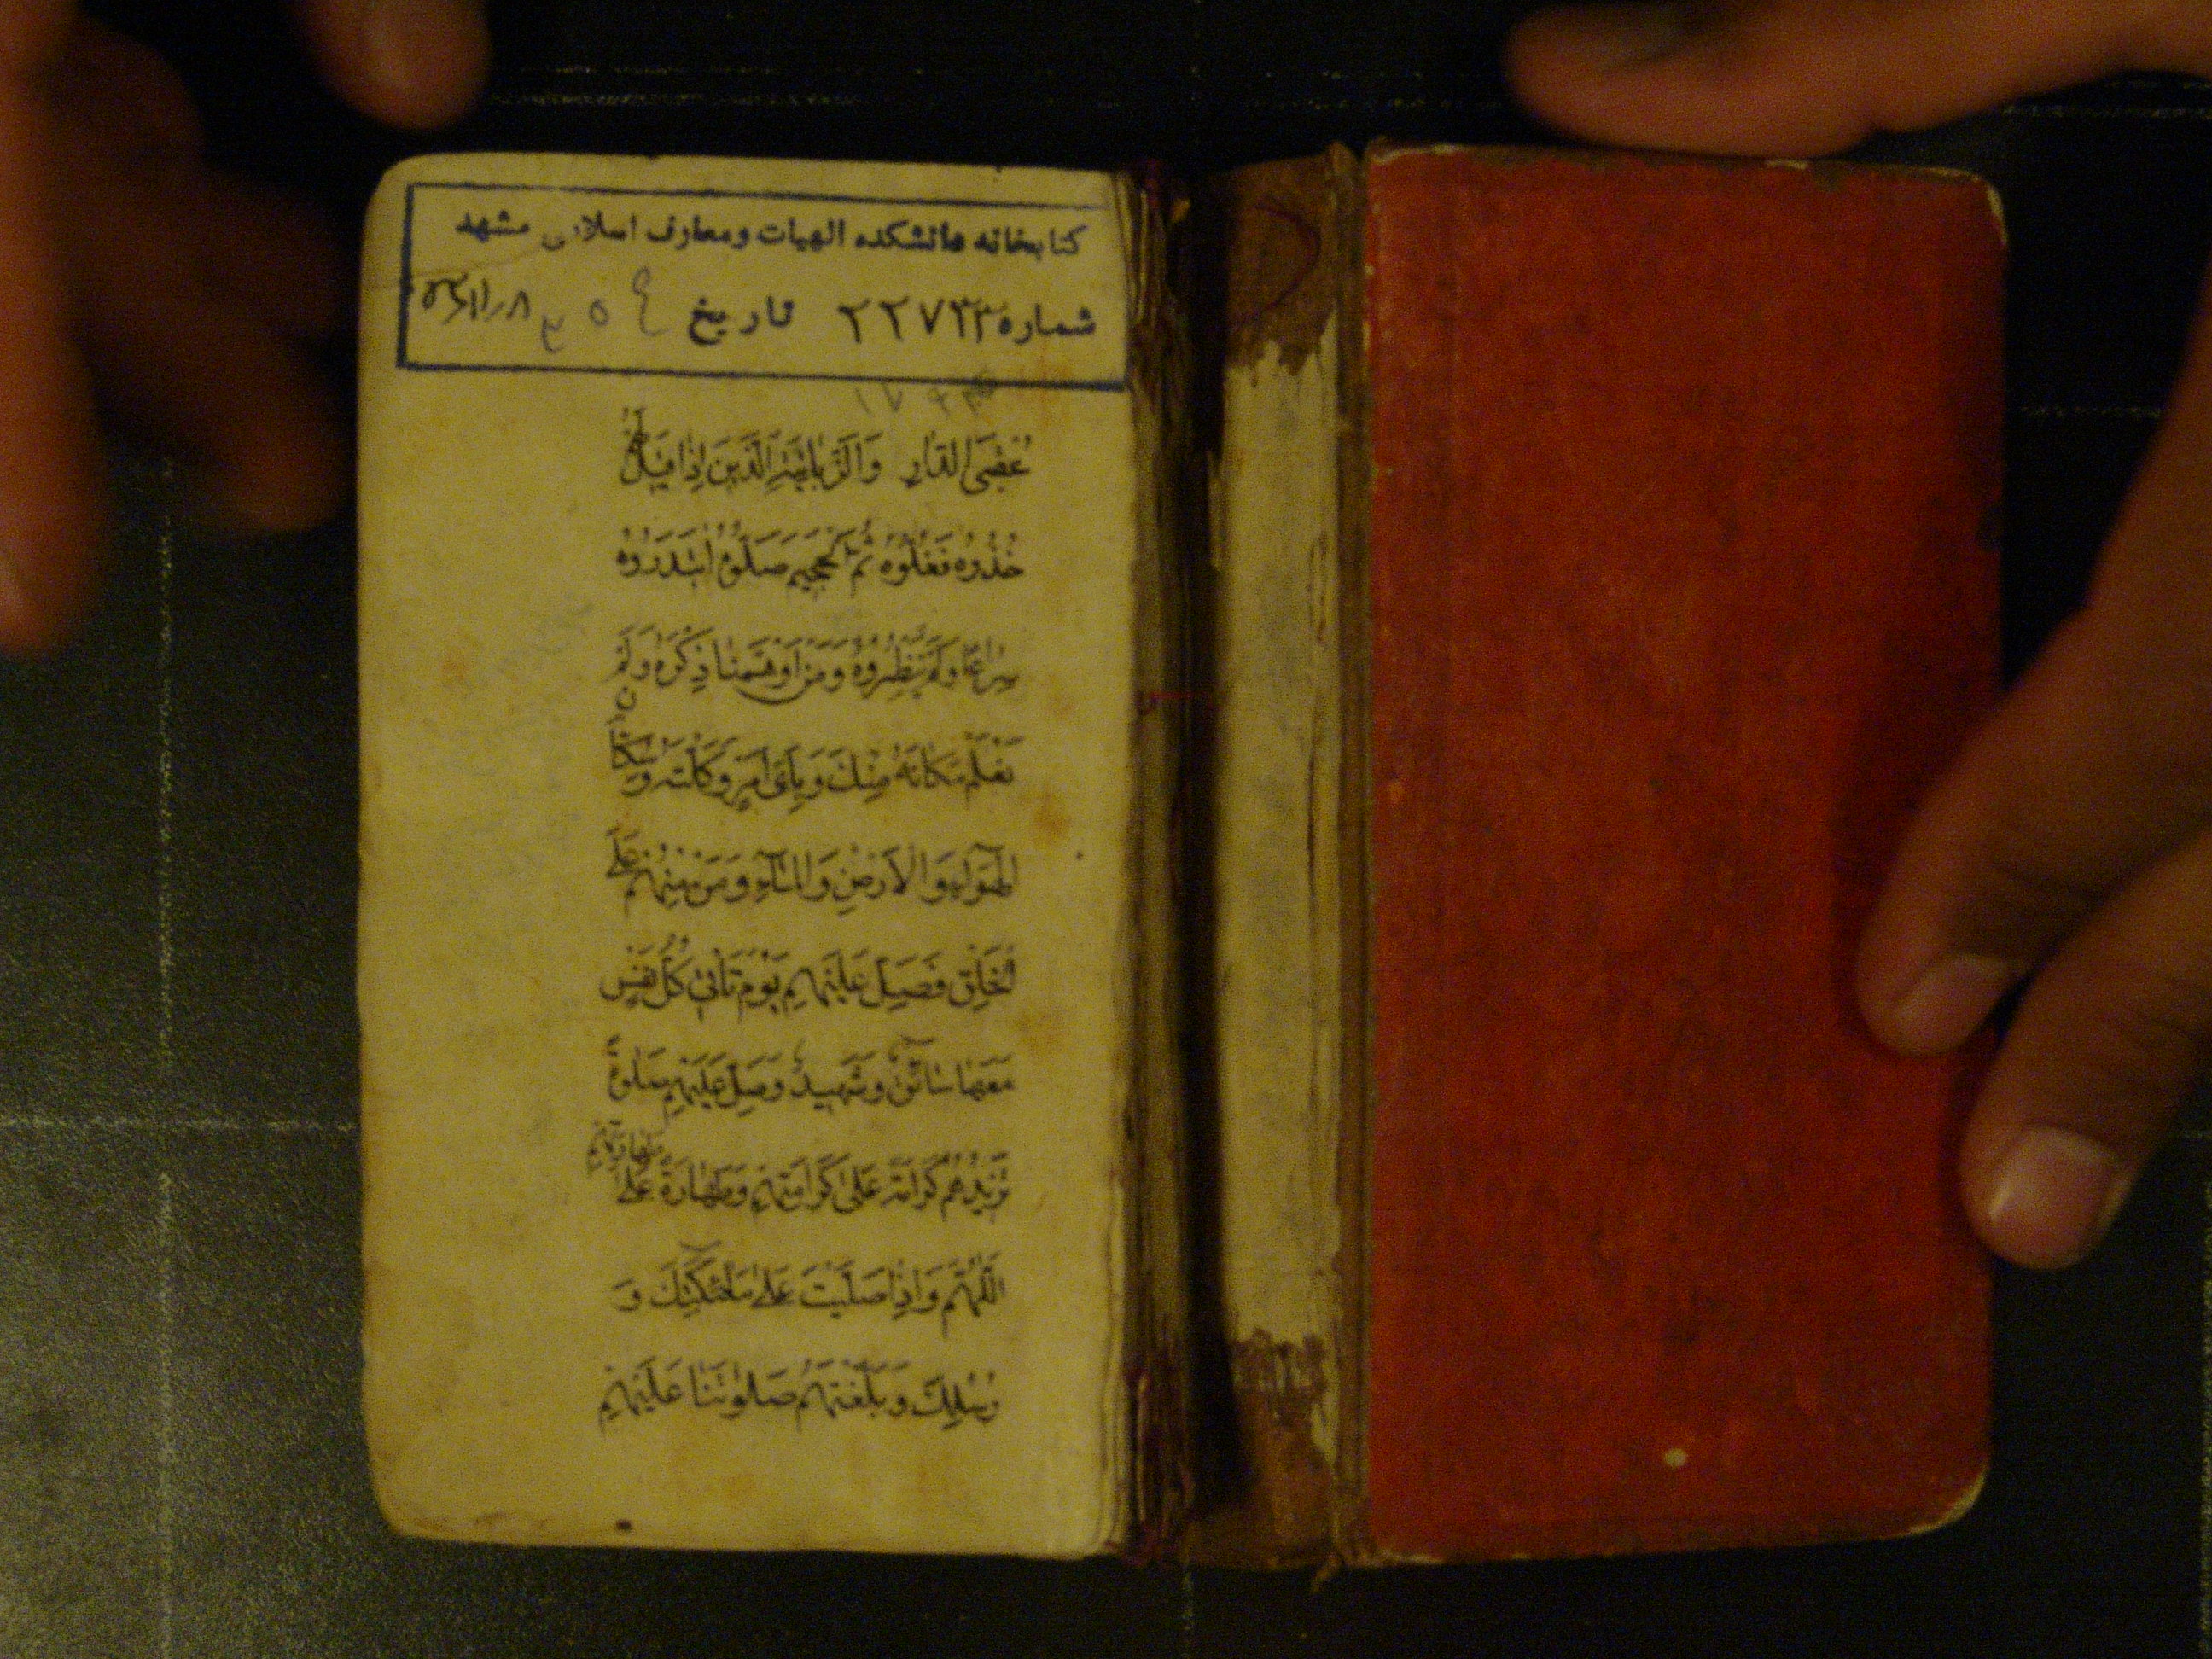 كتابخانه دانشكده الهيات و معارف اسلامى مشهد
شماره ۲۲۷۳۳ تاريخ
عُقْبَى الدّٰارِ وَالزَّبٰانِيَةِ الَّذينَ اِذٰا قيلَ لَهُمْ
خُذُوهُ فَغُلُّوهُ ثُمَّ الْجَحيمَ صَلُّوهُ ابْتَدَرُوهُ
سِرٰاعًا وَلَمْ يُنْظِرُوهُ وَمَنْ اَوْهَمْنٰا ذِكْرَهُ وَلَمْ
نَعْلَمْ مَكٰانَهُ مِنْكَ وَبِاَىِّ اَمْرٍ وَكَّلْتَهُ وَسُكّٰانِ
الْهَوٰاءِ وَالْاَرْضِ وَالْمٰاءِ وَمَنْ مِنْهُمْ عَلَى
الْخَلْقِ فَصَلِّ عَلَيْهِمْ يَوْمَ تَأْتى كُلُّ نَفْسٍ
مَعَهٰا سٰائِقٌ وَشَهيدٌ وَصَلِّ عَلَيْهِمْ صَلٰوةً
تَزيدُهُمْ كَرٰامَةً عَلىٰ كَرٰامَتِهِمْ وَطَهٰارَةً عَلىٰ طَهٰارَتِهِمْ
اَللّٰهُمَّ وَاِذٰا صَلَّيْتَ عَلىٰ مَلٰئِكَتِكَ وَ
رُسُلِكَ وَبَلَّغْتَهُمْ صَلٰوتَنٰا عَلَيْهِمْ